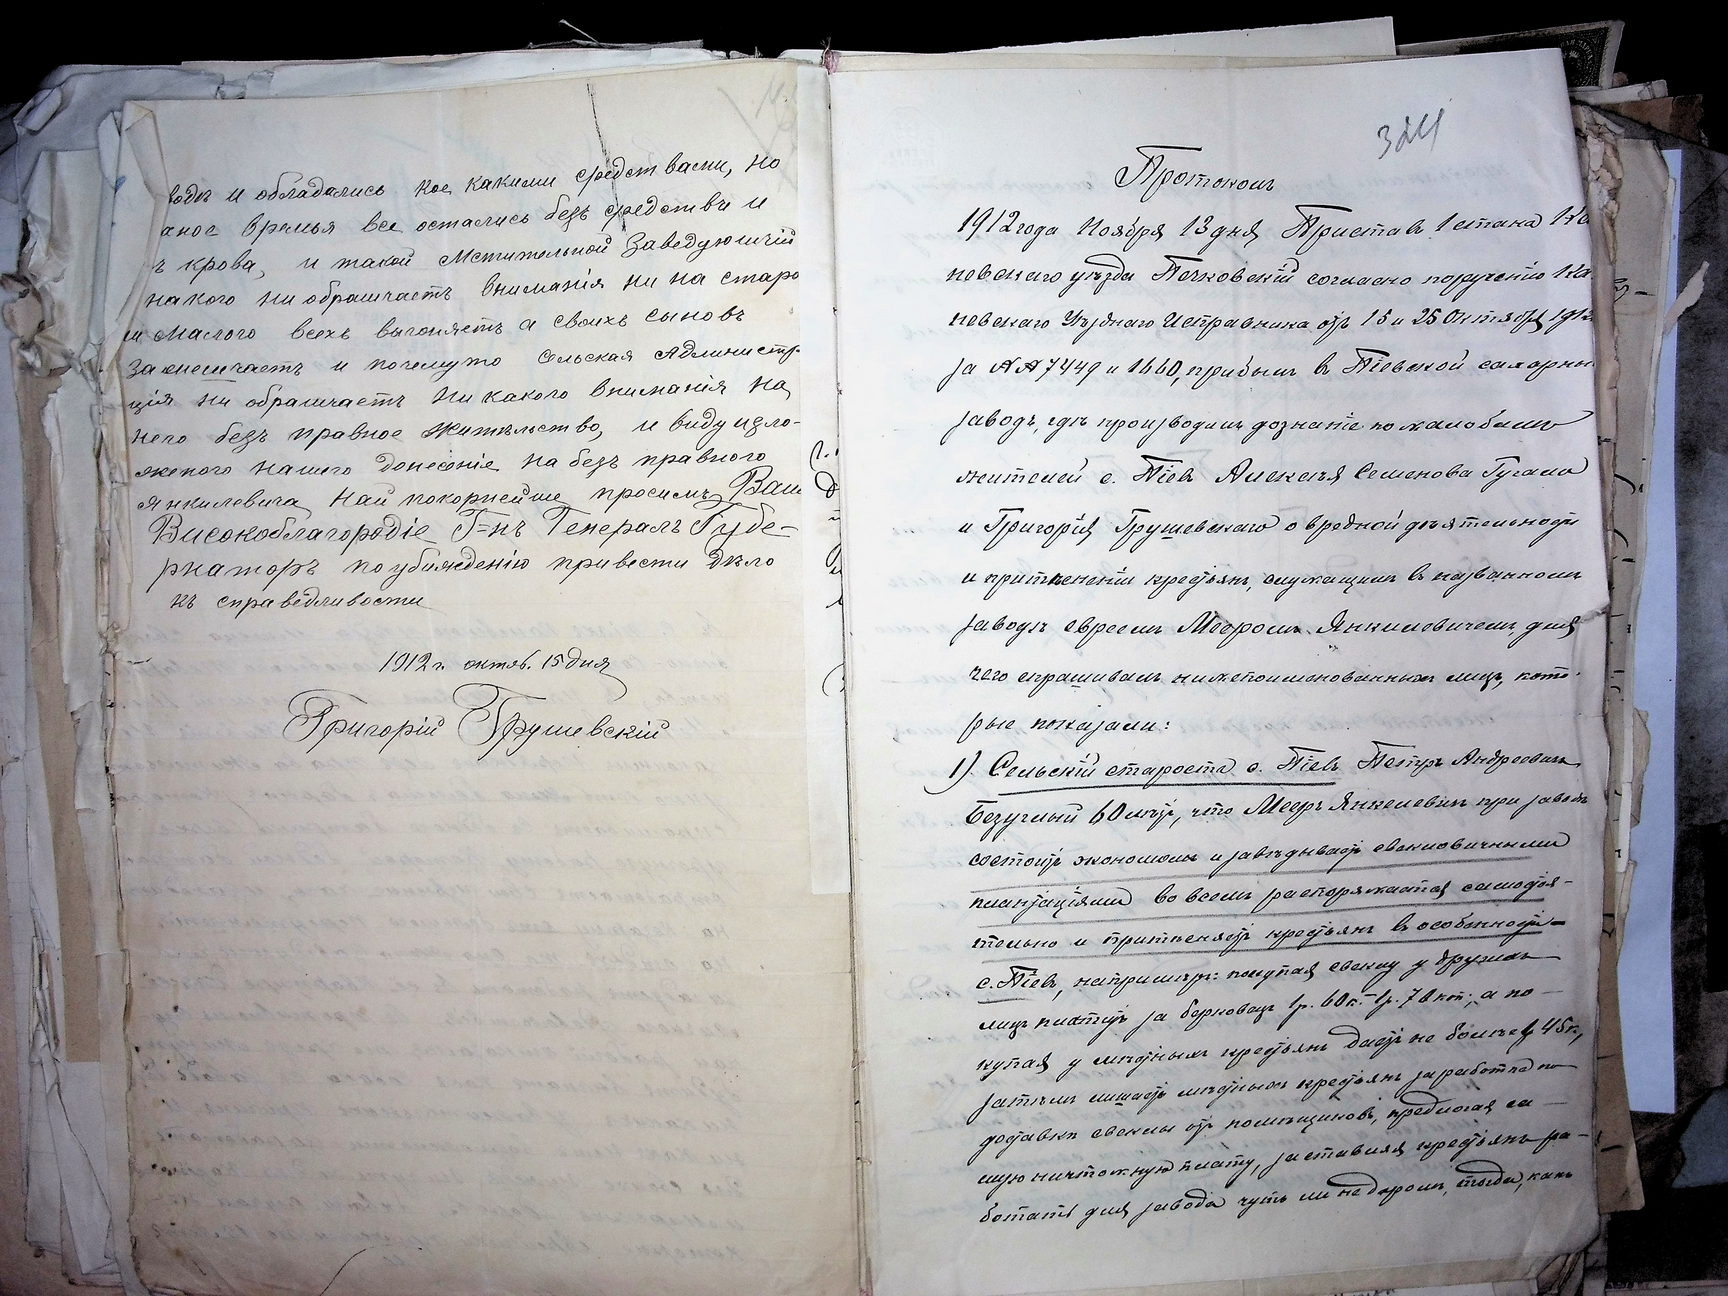 воды и обладались кое какими средствами, но
аное время все остались безъ средствъ и
крова, и такой Мстительной Заведующій
на кого ни обращаетъ вниманія ни на старо
и Малого всехъ выгоняетъ а своихъ сыновъ
Замещаетъ и почемуто Сельская Администр
ція ни обращаетъ Ни какого вниманія на
него безъ правное Жительство, и виду изло-
женого нашего донесеніе на безъ правного
Янкилевича Най покорнейше просимъ Ваш
Високоблагородіе Г=нъ Генералъ Губе-
рнаторъ по убежденію привести дѣло
къ справедливости
1912 г. октяб. 15 дня
Григорій Грушевскій
324
Протоколъ
1912 года Ноября 13 дня Приставъ 1 стана Ка
невскаго уѣзда Печковскій согласно порученію Ка
невскаго Уѣзднаго Исправника отъ 15 и 25 Октября 1912
за №№ 7449 и 1660, прибылъ въ Пѣевской сахарный
заводъ, гдѣ производилъ дознаніе по жалобамъ
жителей с. Пѣевъ Алексѣя Семенова Гугала
и Григорія Грушевскаго о вредной дѣятельности
и притѣсненіи крестьянъ, служащимъ въ названномъ
заводѣ евреемъ Мееромъ Янкилевичемъ, для
чего спрашивалъ нижепоименованныхъ лицъ, кото-
рые показали:
1). Сельскій староста с. Пѣевъ Петръ Андреевичъ
Безуглый 60 лѣтъ, что Мееръ Янкелевичъ при заводѣ
состоитъ экономомъ и завѣдываетъ свекловичными
плантаціями во всемъ распоряжается самостоя-
тельно и притѣсняетъ крестьянъ въ особенности
с. Пѣевъ, напримѣръ: покупая свеклу у другихъ
лицъ платитъ за берковецъ 1 р. 60 к. - 1 р. 70 коп., а по-
купая у мѣстныхъ крестьянъ даетъ не болѣе 1 р. 45 к.,
затѣмъ лишаетъ мѣстныхъ крестьянъ заработка по
доставкѣ свеклы отъ помѣщиковъ, предлагая са-
мую ничтожную плату, заставляя крестьянъ ра-
ботать для завода чуть ли не даромъ, тогда, какъ